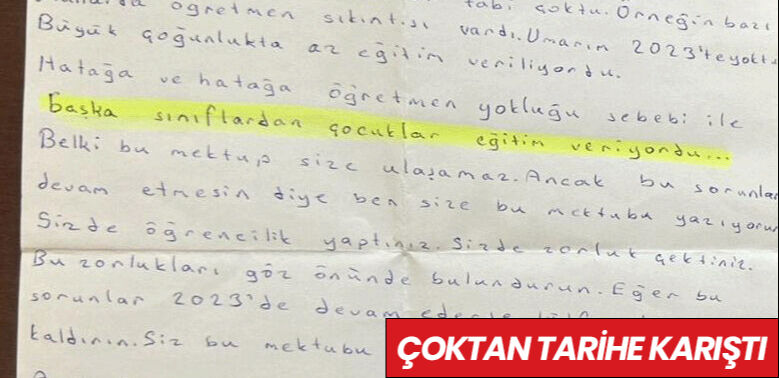 öğretmen sıkıntısı vardı. Umarım 2023'te yoktu
tabi çoktu. Örneğin bazı
Büyük çoğunlukta az eğitim veriliyordu.
Hatağa ve hatağa öğretmen yokluğu sebebi ile
başka sınıflardan çocuklar eğitim veriyordu...
Belki bu mektup size ulaşamaz. Ancak bu sorunlar
devam etmesin diye ben size bu mektubu yazıyorum
Sizde öğrencilik yaptınız. Sizde zorluk çektiniz.
Bu zorlukları göz önünde bulundurun. Eğer bu
sorunlar 2023'de devam ederse
kaldırın. Siz bu mektubu
ÇOKTAN TARİHE KARIŞTI